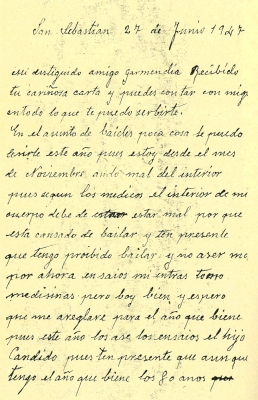 San Sebastian 27 de Junio 1927
mi distiguido amigo garmendia Recibido
tu cariñosa carta y puedes contar con mig
en todo lo que te puedo serbirte.
En el asunto de baieles poca cosa te puedo
desirte este año pues estoy desde el mes
de Noviembre ando mal del interior
pues segun los medicos el interior de mi
cuerpo debe de estar mal por que
esta cansado de bailar y ten presente
que tengo proibido bailar y no aser mo
por ahora ensaios mientras tomo
medisinas pero boy bien y espero
que me areglare para el año que biene
pues este año los ase los ensaios el hijo
Candido pues ten presente que aun que
tengo el año que biene los 80 anos